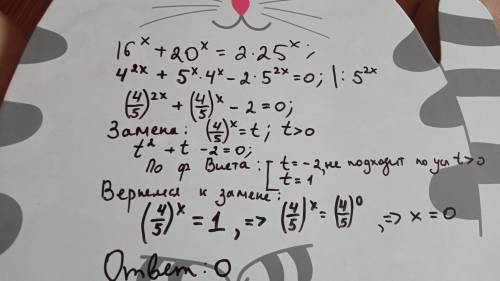 16^x + 20^x = 2·25^x;
4^{2x} + 5^x·4^x − 2·5^{2x} = 0; |: 5^{2x}
(4/5)^{2x} + (4/5)^x − 2 = 0;
Замена: (4/5)^x = t; t>0
t² + t − 2 = 0;
По ф Виета: [ t = −2, не подходит по усл t>0
t = 1
Вернемся к замене:
(4/5)^x = 1, => (4/5)^x = (4/5)^0, => x = 0
Ответ: 0